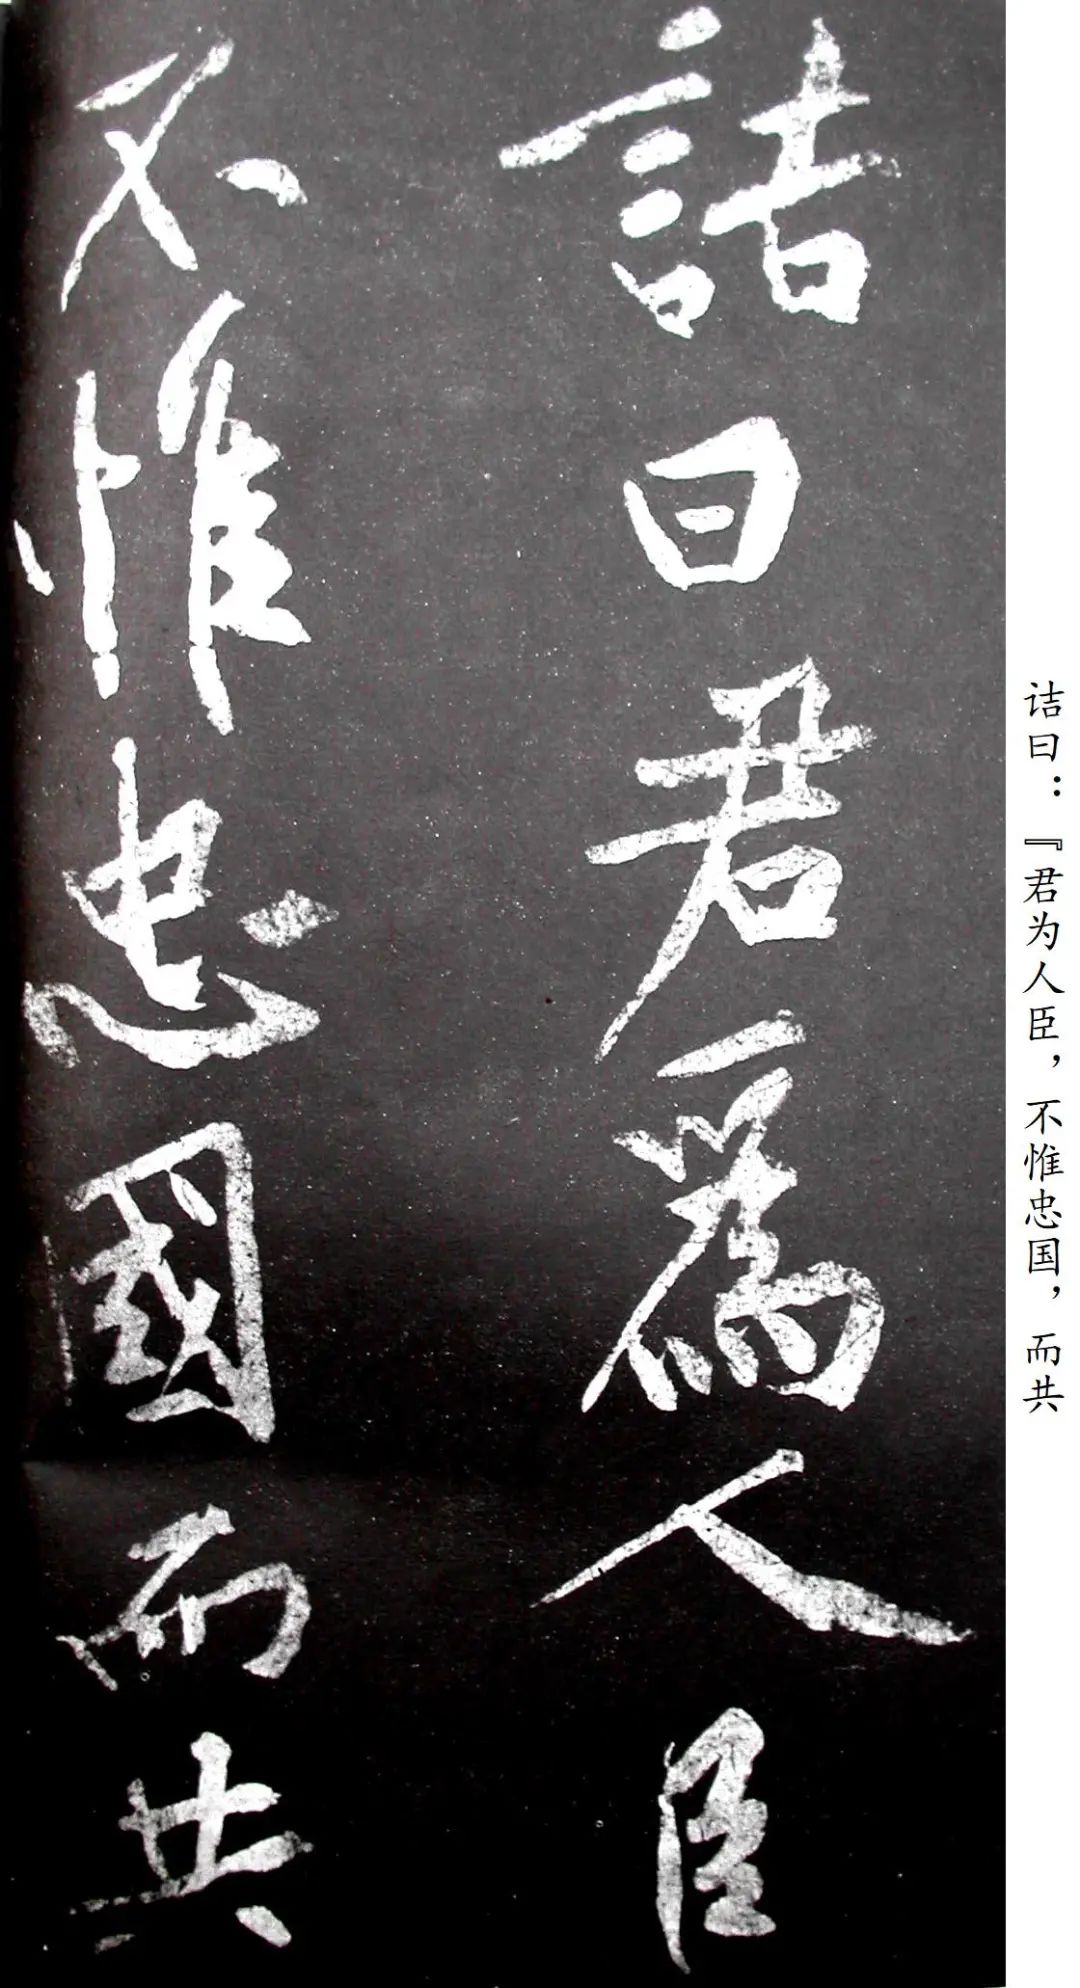 詰曰君爲人臣
不惟忠國而共
诘曰：『君为人臣，不惟忠国，而共